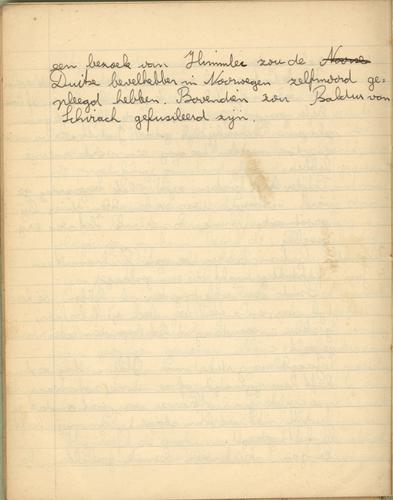 een bezoek van Himmler zou de Noorse
Duitse bevelhebber in Noorwegen zelfmoord ge=
pleegd hebben. Bovendien zou Baldur von
Schirach gefusileerd zijn.